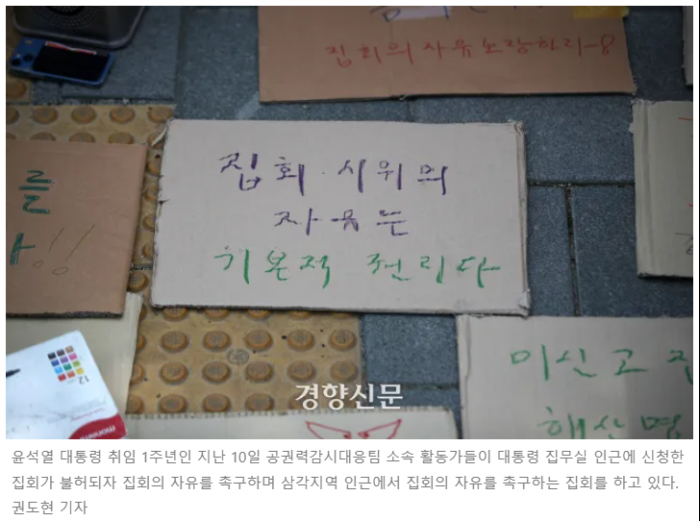 집회의자유보장하라-8
집회·시위의
자유는
기본적 권리다
를
!!
미신고 집
해산명
12
경향신문
윤석열 대통령 취임 1주년인 지난 10일 공권력감시대응팀 소속 활동가들이 대통령 집무실 인근에 신청한
집회가 불허되자 집회의 자유를 촉구하며 삼각지역 인근에서 집회의 자유를 촉구하는 집회를 하고 있다.
권도현 기자